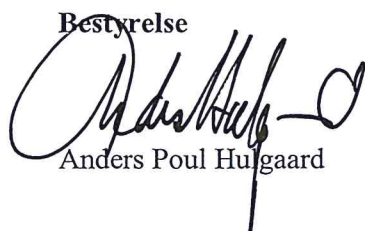 Bestyrelse
Anders Poul Hulgaard